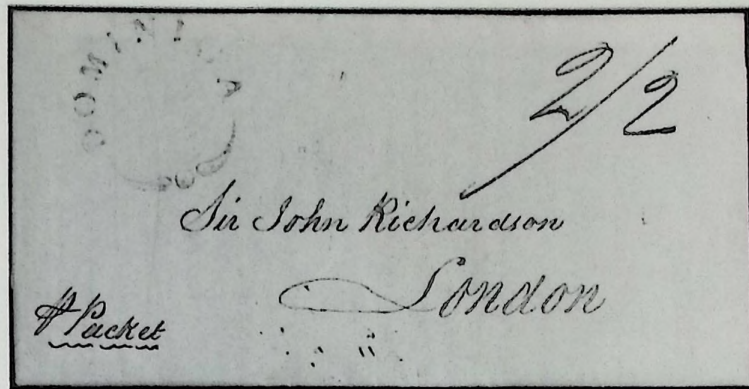 DOMINICA
2/2
Sir John Richardson
London
P Packet